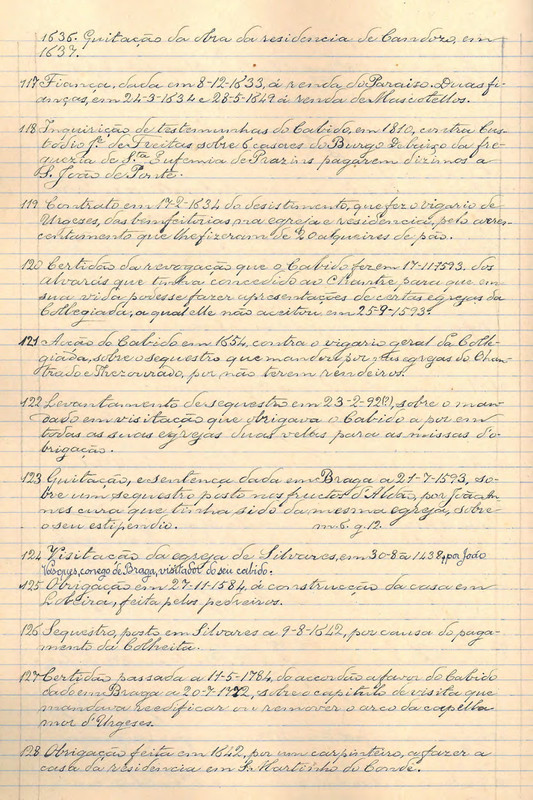 1636. Quitação da obra da residencia de Candozo, em
1637.
117 Fiança, dada em 8-12-1633, á renda do Paraiso. Duas fi-
anças, em 24-3-1634 e 28-5-1649 á renda de Mascotellos.
118 Inquirição de testemunhas do Cabido, em 1810, contra Cus-
todio Je. de Freitas sobre 6 casares do Burgo Debaixo da fre-
guezia de S.ta Eufemia de Prazins pagarem dizimos a
S. João de Ponte.
119 Contrato em 17-2-1634 do desistimento, que fez o vigario de
Urgeses, das bemfeitorias na egreja e residencia, pelo acres-
centamento que lhe fizeram de 20 alqueires de pão.
120 Certidão da revogação que o Cabido fez em 17-1-1593, dos
alvarás que tinha concedido ao Chantre para que em
sua vida podesse fazer apresentações de certas egrejas da
Collegiada, a qual elle não aceitou em 25-9-1593.
121 Acção do Cabido em 1654, contra o vigario geral da Colle-
giada, sobre o sequestro que mandou por nas egrejas do Chan-
trado e Thezourado, por não terem rendeiros.
122 Levantamento de sequestro em 23-2-92(?), sobre o man-
dado em visitação que obrigava o Cabido a por em
todas as suas egrejas duas vellas para as missas d'o-
brigação.
123 Quitação, e sentença dada em Braga a 21-7-1593, so-
bre um sequestro posto nos fructos d'Aldão, por João
mes cura que tinha sido da mesma egreja, sobre
o seu estipendio. m.6. g.12.
124 Visitação da egreja de Silvares, em 30-8-1438, por João
Vasques, conego de Braga, visitador do seu cabido.
125 Obrigação em 27-11-1584, á construcção da casa em
Lobeira, feita pelos pedreiros.
126 Sequestro, posto em Silvares a 9-8-1642, por causa do paga-
mento da Colheita.
127 Certidão passada a 11-5-1784, do accordão a favor do Cabido
dado em Braga a 20-7, sobre o capitulo de visita que
mandava reedificar ou remover o arco da capella
mor d'Urgeses.
128 Obrigação feita em 1642, por um carpinteiro, a fazer a
casa da residencia em S. Martinho do Conde.